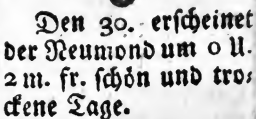 Den 30. erscheinet
der Neumond um 0 U.
2 m. fr. schön und tro⸗
ckene Tage.